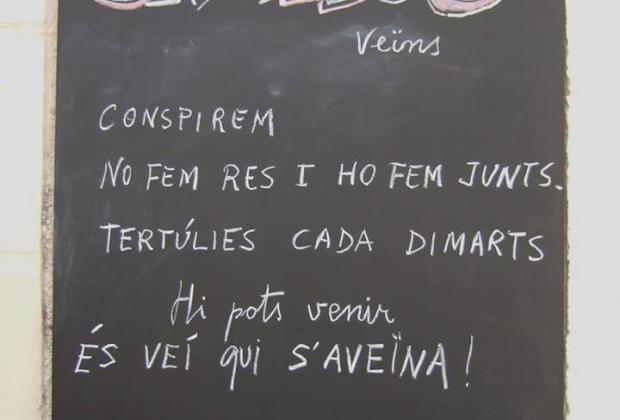 Veïns
CONSPIREM
NO FEM RES I HO FEM JUNTS.
TERTÚLIES CADA DIMARTS
Hi pots venir
ÉS VEÍ qui S'AVEÏNA!